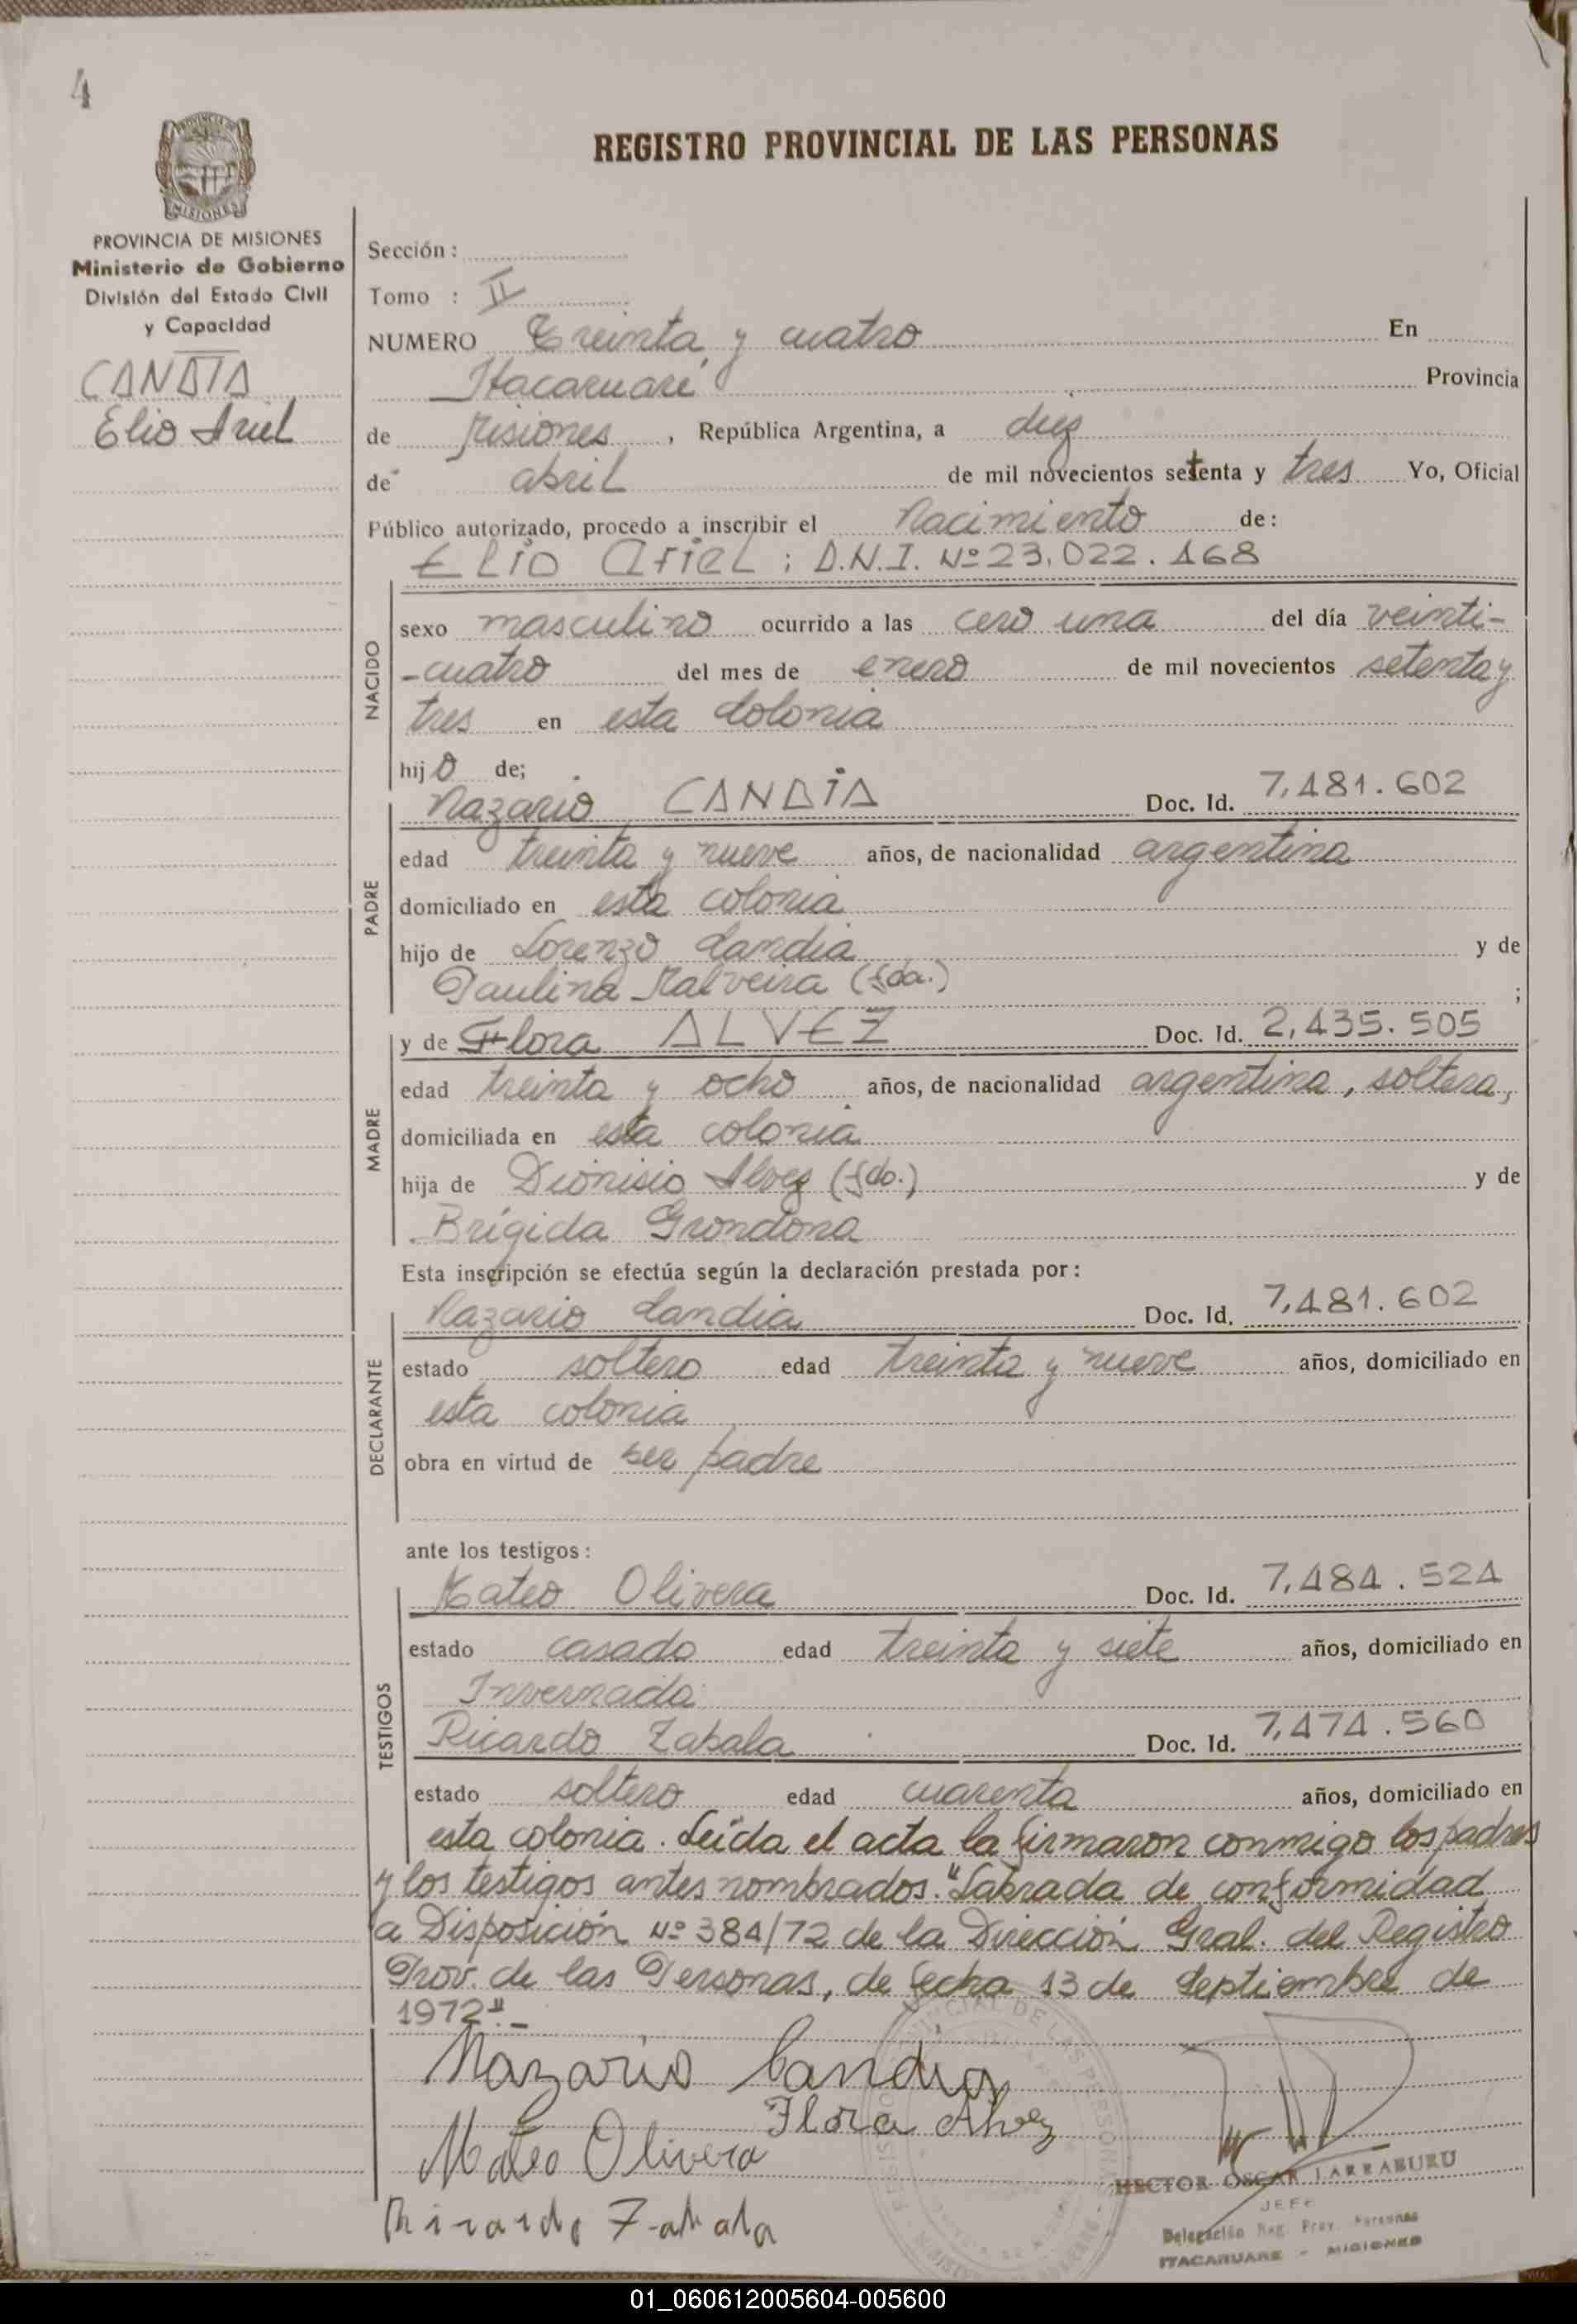 4
REGISTRO PROVINCIAL DE LAS PERSONAS
PROVINCIA DE
MISIONES
PROVINCIA DE MISIONES
Ministerio de Gobierno
División del Estado Civil
y Capacidad
CANDIA
Elio Ariel
Sección :
Tomo : II
NUMERO Treinta y cuatro En
Itacaruaré Provincia
de Misiones , República Argentina, a diez
de abril de mil novecientos setenta y tres Yo, Oficial
Público autorizado, procedo a inscribir el Nacimiento de:
ELIO ARIEL : D.N.I. Nº 23.022.168
NACIDO
sexo masculino ocurrido a las cero una del día veinti-
-cuatro del mes de enero de mil novecientos setenta y
tres en esta Colonia
hijo de;
PADRE
Nazario CANDIA Doc. Id. 7.481.602
edad treinta y nueve años, de nacionalidad argentina
domiciliado en esta colonia
hijo de Lorenzo Candia y de
Paulina Malveira (fda.) ;
MADRE
y de Flora ALVEZ Doc. Id. 2.435.505
edad treinta y ocho años, de nacionalidad argentina, soltera,
domiciliada en esta colonia
hija de Dionisio Alvez (fdo.) y de
Brígida Grondona
Esta inscripción se efectúa según la declaración prestada por :
DECLARANTE
Nazario Candia Doc. Id. 7.481.602
estado soltero edad treinta y nueve años, domiciliado en
esta colonia
obra en virtud de ser padre
ante los testigos :
TESTIGOS
Mateo Olivera Doc. Id. 7.484.521
estado casado edad treinta y siete años, domiciliado en
Invernada
Ricardo Zabala Doc. Id. 7.474.560
estado soltero edad cuarenta años, domiciliado en
esta colonia. Leída el acta la firmaron conmigo los padres
y los testigos antes nombrados. "Labrada de conformidad
a Disposición Nº 384/72 de la Dirección Gral. del Registro
Prov. de las Personas, de fecha 13 de Septiembre de
1972".-
Nazario Candia
Flora Alvez
Mateo Olivera
Ricardo Zabala
HECTOR OSCAR LARRABURU
JEFE
Delegación Reg. Prov. Personas
ITACARUARE - MISIONES
01_060612005604-005600